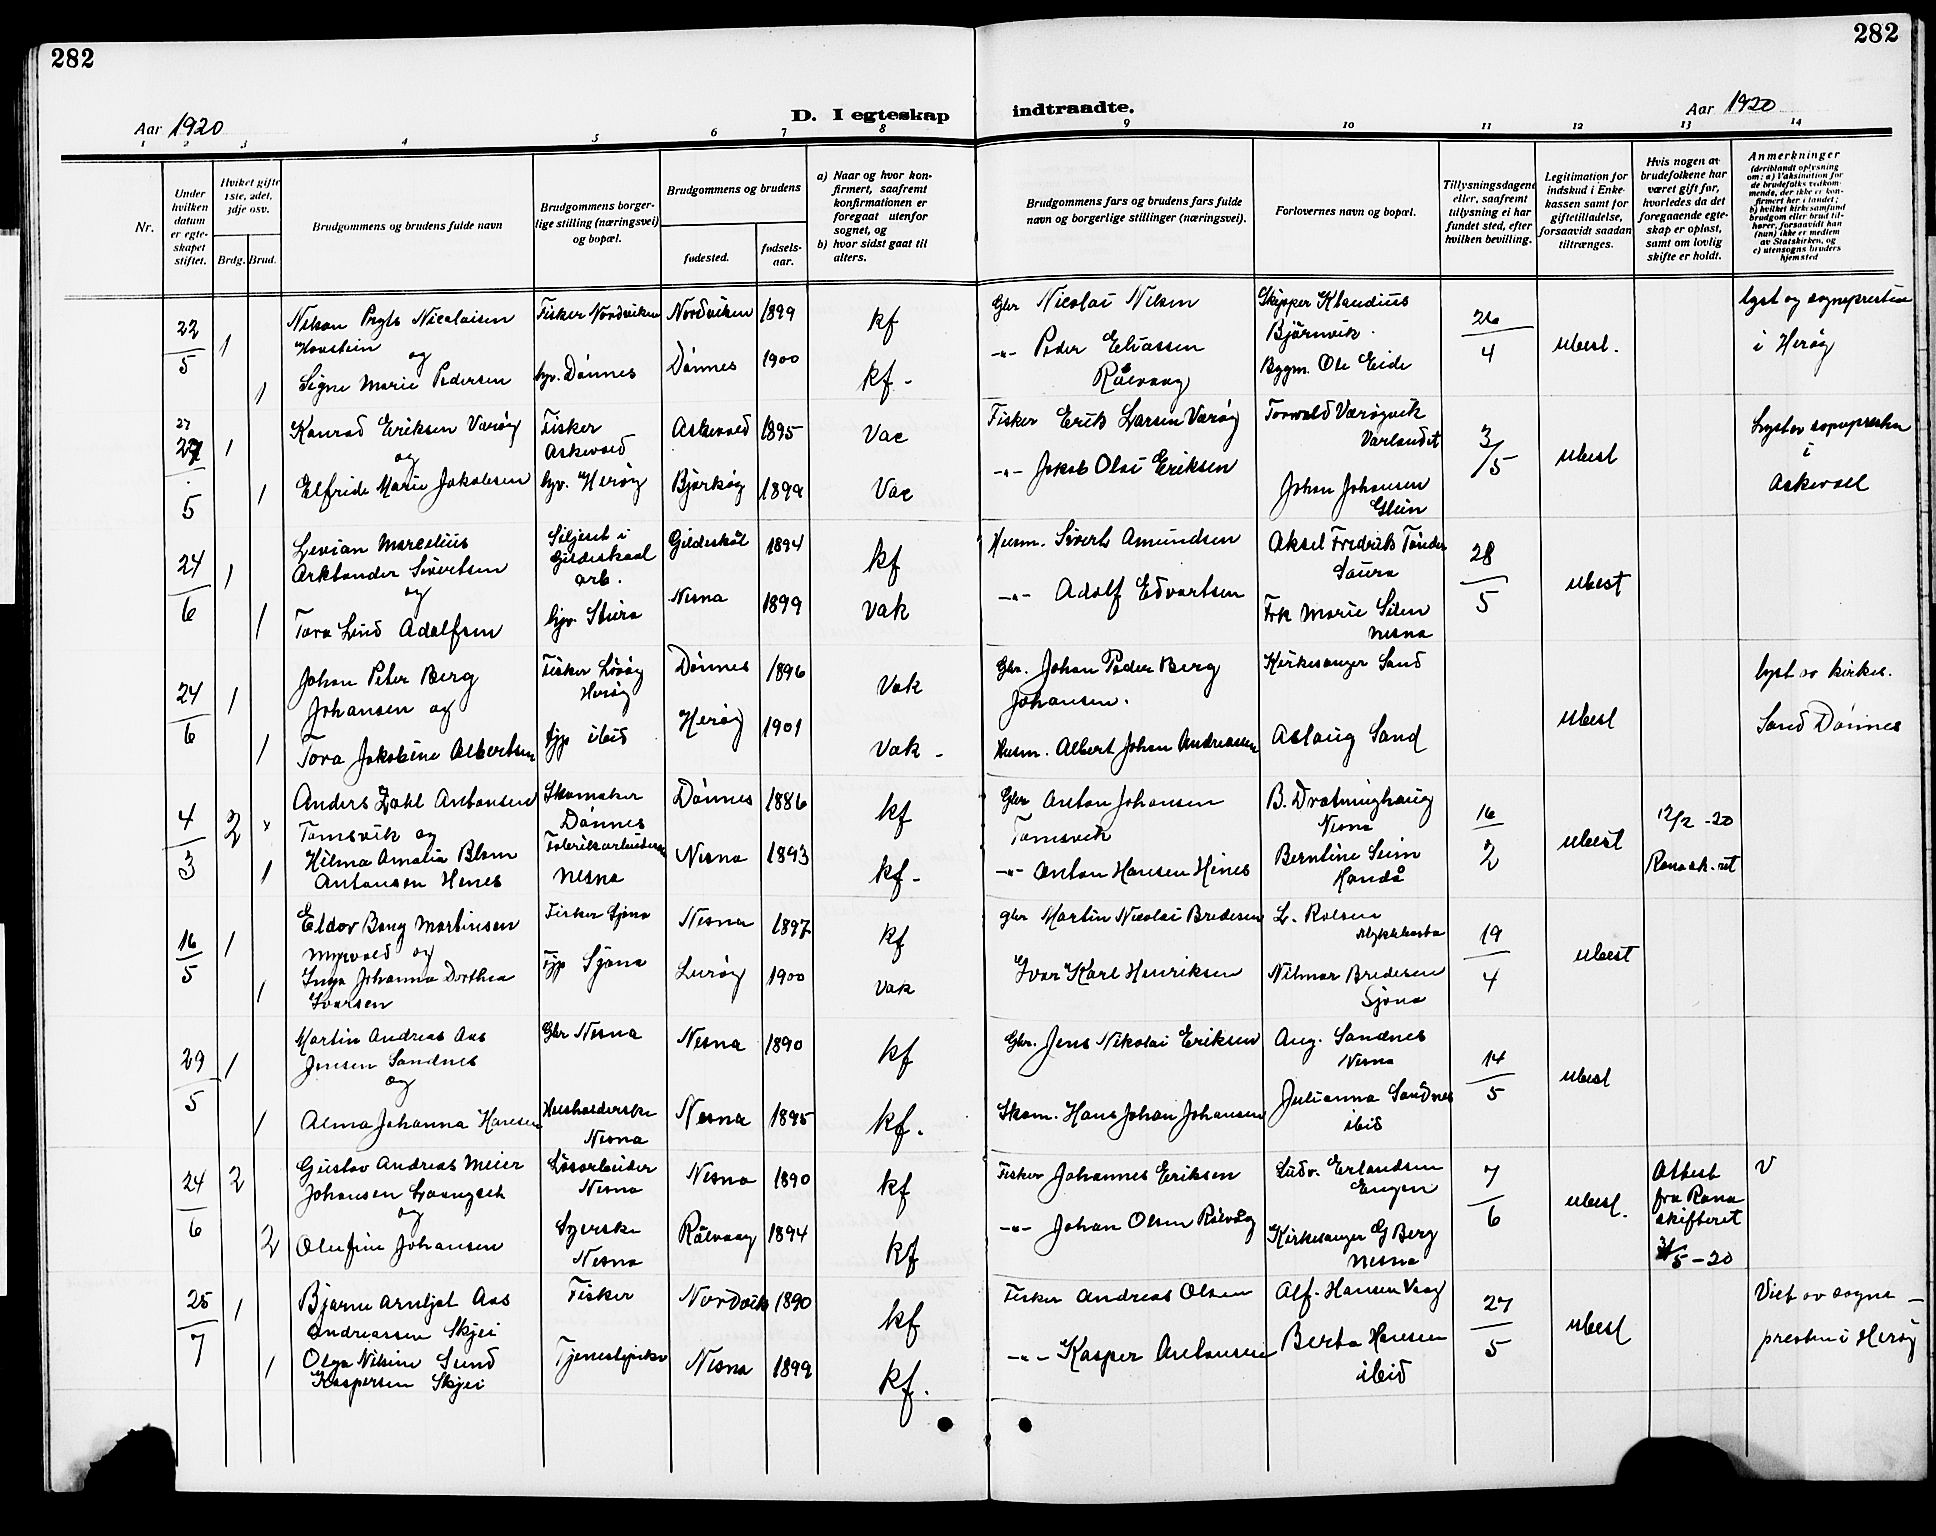 282
282
Aar 1920
D. I egteskap
indtraadte.
Aar 1920
1 2 3 4 5 6 7 8 9 10 11 12 13 14
Nr.
Under hvilken datum er egteskapet stiftet.
Hvilket gifte 1ste, 2det, 3dje osv.
Brdg. Brud.
Brudgommens og brudens fulde navn
Brudgommens borgerlige stilling (næringsvei) og bopæl.
Brudgommens og brudens
fødested.
fødselsaar.
a) Naar og hvor konfirmert, saafremt konfirmationen er foregaat utenfor sognet, og
b) hvor sidst gaat til alters.
Brudgommens fars og brudens fars fulde navn og borgerlige stillinger (næringsvei).
Forlovernes navn og bopæl.
Tillysningsdagene eller, saafremt tillysning ei har fundet sted, efter hvilken bevilling.
Legitimation for indskud i Enkekassen samt for giftetilladelse, forsaavidt saadan tiltrænges.
Hvis nogen av brudefolkene har været gift før, hvorledes da det foregaaende egteskap er opløst, samt om lovlig skifte er holdt.
Anmerkninger
(deriblandt oplysning om: a) Vaksination for de brudefolks vedkommende, der ikke er konfirmert her i landet;
b) hvilket kirkesamfund brudgom eller brud tilhører, forsaavidt han (hun) ikke er medlem av Statskirken, og
c) utensogns bruders hjemsted
22/5 1 Nilson Nicolaisen Fisker Nordviken Nordviken 1899 kf Gbr Nicolai Nilsen Skipper Klaudius 26/4 ubest. lyst og sogneprestein
Hovstein Bjørnvik. i Herøy
og
1 Signe Marie Pedersen hjv. Dønnes Dønnes 1900 kf - -"- Peder Eliassen Bygm. Ole Eide
Rølvaag
27
27/5 1 Konrad Eriksen Værøy Fisker Askevold 1895 Vac Fisker Erik Larsen Værøy Torvald Værøyvik 3/5 ubest Lyst av sogneprestn
og Askevold i
1 Elfride Marie Jakobsen hjv. Herøy Bjørkøy 1899 Vac -"- Jakob Olai Eriksen Johan Johansen Askevoll
Glein
24/6 1 Levian Marcelius Gildeskaal Gildeskål 1894 kf Husm. Sivert Amundsen Aksel Fredrik Tønder 28/5 ubest
Arktander Sivertsen arb. Saura
og
1 Tora Lind Adolfsen hjv. Nesna 1899 vak -"- Adolf Edvartsen Frk Marie
Nesna
24/6 1 Johan Peter Berg Fisker Dønnes 1896 vak Gbr. Johan Peder Berg Kirkesanger Sand ubest lyst av kirkes.
Johansen og Herøy Johansen. Sand Dønnes
1 Tora Jakobine Albertsen ibid Herøy 1901 vak - Husm. Albert Johan Andreassen Aslaug Sand
4/3 2 Anders Zahl Antonsen Skomaker Dønnes 1886 kf Gbr Anton Johansen B. Dratninghaug 16/2 ubest 12/2 -20
Tomsvik og Dønnes Tomsvik Nesna
1 Hilma Amalia Blom Fabrikarbeiderske Nesna 1893 kf - -"- Anton Hansen Hines Berntine Seim Rana sk. ret
Antonsen Hines Nesna Handå
16/5 1 Eldor Bang Martinsen Fisker Sjona Nesna 1897 kf Gbr Martin Nicolai Bredesen L. Rolsen 19/4 ubest
Myrvold og
1 Inga Johanna Dorthea Tjp Sjona Lurøy 1900 vak Ivar Karl Henriksen Nilmar Bredesen
Ivarsen Sjona
29/5 1 Martin Andreas Aas Gbr Nesna Nesna 1890 kf Gbr. Jens Nikolai Eriksen Aug. Sandnes 14/5 ubest
Jensen Sandnes Nesna
og
1 Alma Johanna Hansen Husholderske Nesna 1895 kf. Skom. Hans Johan Johansen Julianna Sandnes
Nesna ibid
24/6 2 Gustav Andreas Meier Løsarbeider Nesna 1890 kf Fisker Johannes Eriksen Ludv. Erlandsen 7/6 ubest. Attest V
Johansen Nesna Engen fra Rana
og skifteret
2 Olufine Johansen Syerske Rølvaag 1894 kf -"- Johan Olsen Rølvåg Kirkesanger G Berg 31/5 -20
Nesna Nesna
25/7 1 Bjarne Arnljot Aas Fisker Nordvik 1890 kf Fisker Andreas Olsen Alf. Hansen Vaag 27/5 ubest Viet av sogne-
Andreassen Skjei presten i Herøy
1 Olga Nilsine Sund Tjenestepike Nesna 1899 kf. -"- Kasper Antonsen Berta Hansen
Kaspersen Skjei ibid